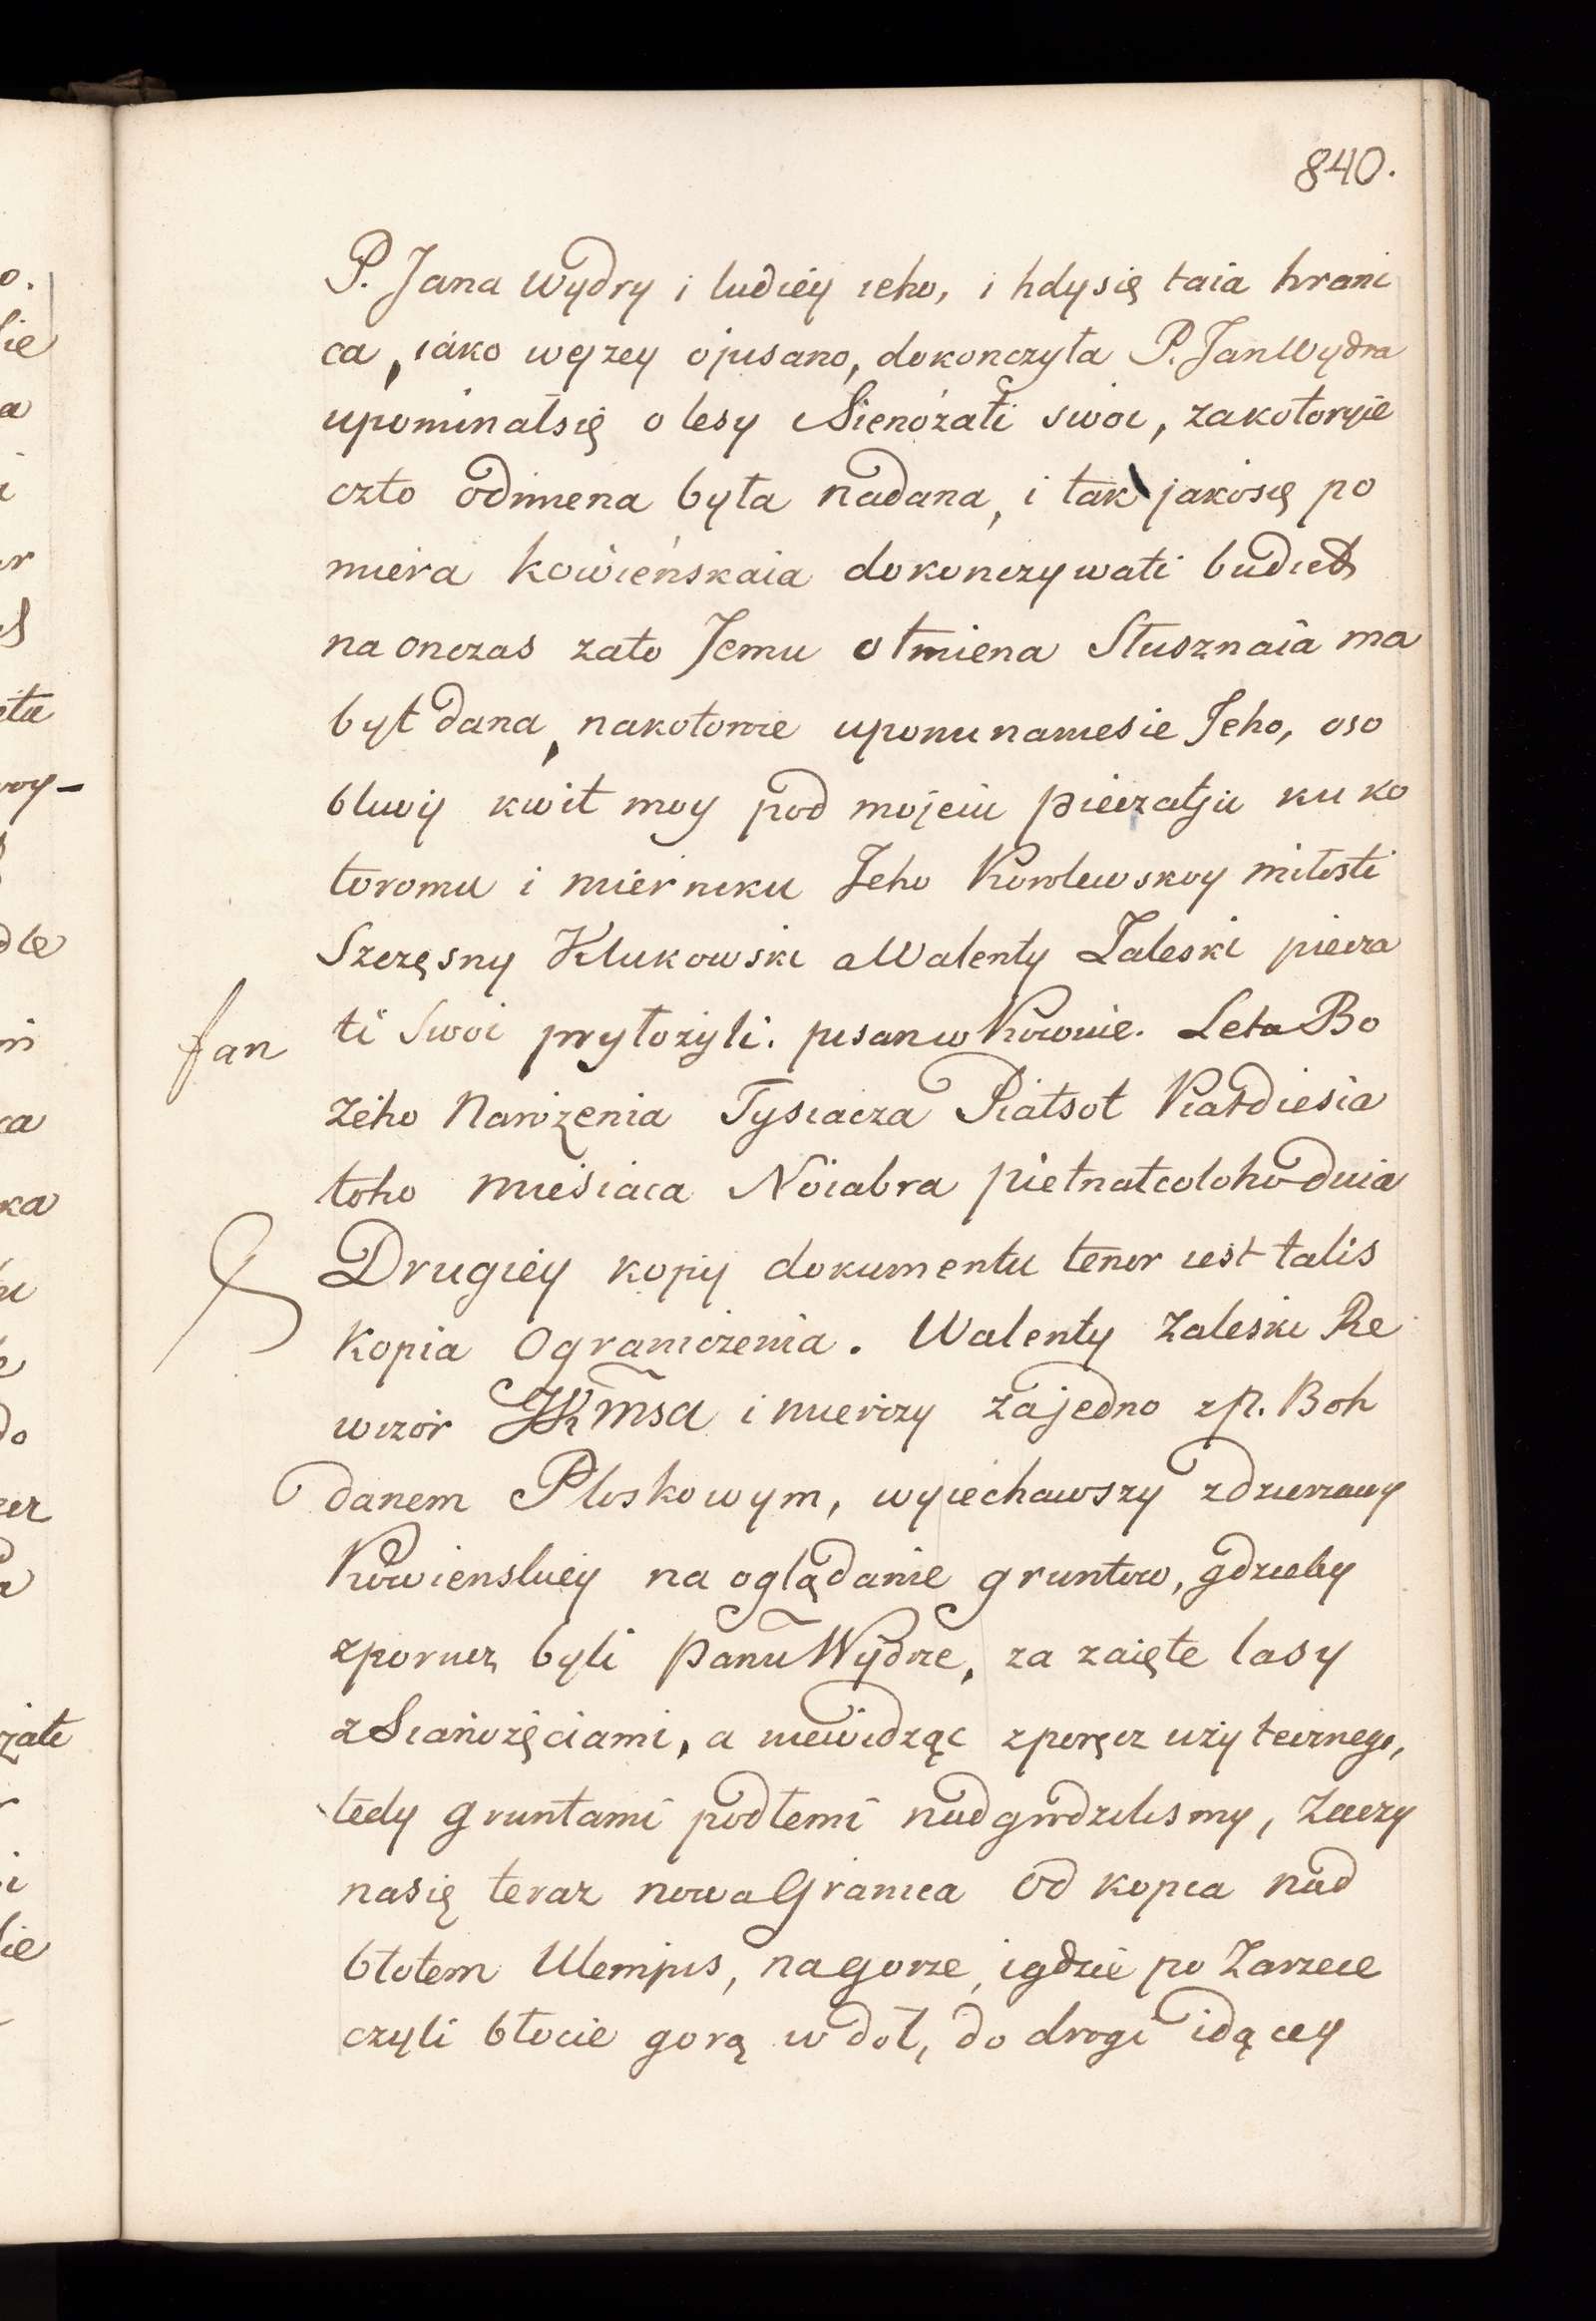 840.
P. Jana Wydry i ludiéy ieho, i hdysię taia hrani
ca, iako wyzey opisano, dokonczyła P. Jan Wydra
upominałsię o lesy Sienożati swoi, zakotoryie
czto odmena była nadana, i tak jakosię po
miera kowieńskaia dokonczywati budiet
na onczas zato Jemu otmiena Słusznaia ma
byt dana, nakotorie upominaniesie Jeho, oso
bliwy kwit moy pod mojeiu pieczatju ku ko
toromu i mierniku Jeho Korolewskoy miłosti
Szczęsny Klukowski a Walenty Zaleski pieza
fan ti Swoi pryłożyli. pisan w Kownie. Leta Bo
żeho Narożenia Tysiacza Piatsot Piatdiesia
toho miesiaca Noiabra pietnatcotoho dnia
Drugiéy kopij dokumentu tenor iest talis
Kopia Ograniczenia. Walenty Zaleski Re
wizór JKmsa i mierczy zajedno z p. Boh
danem Ploskowym, wyiechawszy z dzierzawy
Kowienskiéy na oglądanie gruntow, gdzieby
zporucz byli Panu Wydrze, za zaięte lasy
z Sianożęciami, a niewidząc zporęcz użytecznego,
tedy gruntami podtemi nadgrodzilismy, Zaczy
nasię teraz nowa Granica od kopca nad
błotem Ulempis, na gorze, i gdzie po Zarzece
czyli błocie gorą w doł, do drogi idącey